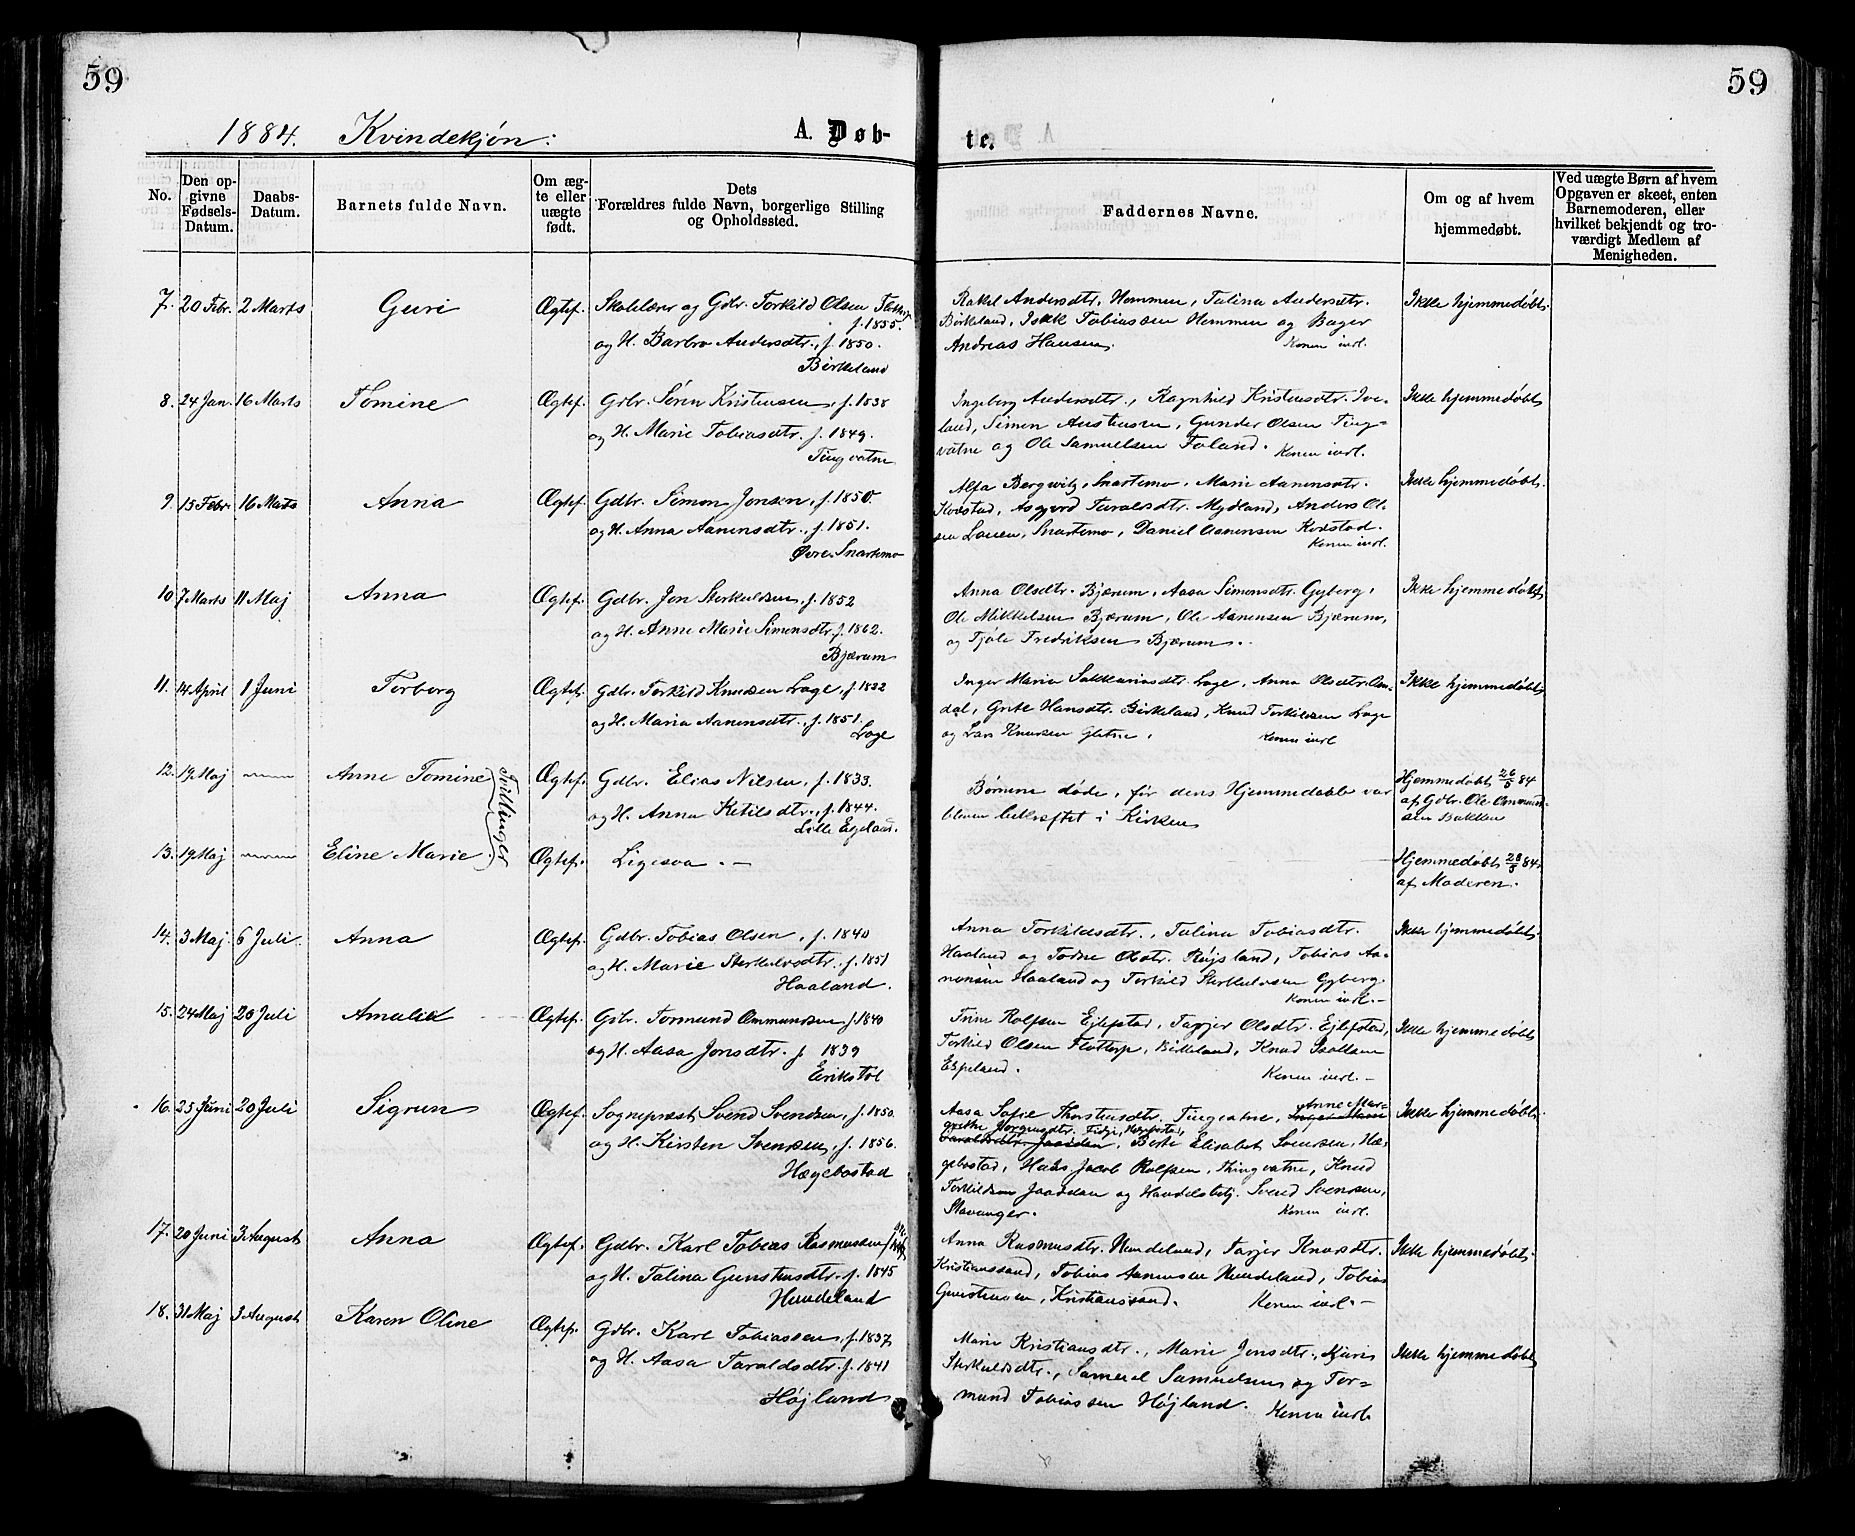 59
59
1884. Kvindekjøn:
A. Døb-
te.
No.
Den op-
givne
Fødsels-
Datum.
Daabs-
Datum.
Barnets fulde Navn.
Om æg-
te eller
uægte
født.
Dets
Forældres fulde Navn, borgerlige Stilling
og Opholdssted.
Faddernes Navne.
Om og af hvem
hjemmedøbt.
Ved uægte Børn af hvem
Opgaven er skeet, enten
Barnemoderen, eller
hvilket bekjendt og tro-
værdigt Medlem af
Menigheden.
7. 20 Febr. 2 Marts Guri Ægtef. Skolelærer og Gdbr. Torkild Olsen
f. 1855.
og H. Barbro Andersdtr., f. 1850.
Birkeland
Rakel Andersdtr. Hommen, Talina Andersdtr.
Birkeland, Isak Tobiassen Hommen og Bager
Andreas Hansen. Konen indl.
Ikke hjemmedøbt.
8. 24 Jan. 16 Marts Tomine Ægtef. Gdbr. Søren Kristensen, f. 1838
og H. Marie Tobiasdtr. f. 1849.
Tingvatne
Ingeborg Andersdtr., Ragnhild Kristensdtr. Ive-
land, Simen Austensen, Gunder Olsen Ting-
vatne og Ole Samuelsen Foland. Konen indl.
Ikke hjemmedøbt
9. 15 Febr. 16 Marts Anna Ægtef. Gdbr. Simon Jonsen, f. 1850.
og H. Anna Aanensdtr., f. 1851.
Øvre Snartemo
Alfa Bergwitz, Snartemo, Marie Aanensdtr.
Kvestad, Asgjerd Taraldsdtr. Mydland, Anders Ol-
sen Lauen, Snartemo, Daniel Aanensen Kvestad.
Konen indl.
Ikke hjemmedøbt.
10. 7 Marts 11 Maj Anna Ægtef. Gdbr. Jon Sterkuldsen, f. 1852
og H. Anne Marie Simensdtr. f. 1862.
Bjærum
Anna Olsdtr. Bjærum, Aasa Simensdtr. Gyberg,
Ole Mikkelsen Bjærum, Ole Aanensen Bjærum,
og Tjøle Fredriksen Bjærum.
Ikke hjemmedøbt
11. 14 April 1 Juni Torborg Ægtef. Gdbr. Torkild Knudsen Lage, f. 1832
og H. Maria Aanensdtr., f. 1851.
Lage
Inger Marie Sakkariasdtr. Lage, Anna Olsdtr. Om-
dal, Grete Hansdtr. Birkeland, Knud Torkildsen Lage
og Lars Knudsen Gletne. Konen indl
Ikke hjemmedøbt
12. 19 Maj Anne Tomine Ægtef. Gdbr. Elias Nilsen, f. 1833.
og H. Anna Ketilsdtr., f. 1844.
Lille Egeland.
Tvillinger
Børnene døde, før deres Hjemmedaab var
bleven bekræftet i Kirken
Hjemmedøbt 26/5 84
af Gdbr. Ole Ommund-
sen Bakken
13. 19 Maj Eline Marie Ægtef. Ligesaa. —
Hjemmedøbt 28/5 84
af Moderen.
14. 3 Maj 6 Juli Anna Ægtef. Gdbr. Tobias Olsen, f. 1840
og H. Marie Sterkulvsdtr. f. 1851
Haaland.
Anna Torkildsdtr., Talina Tobiasdtr.
Haaland og Todne Olsdtr. Røjsland, Tobias Aa-
nensen Haaland og Torkild Sterkuldsen Gyberg.
Konen indl. —
Ikke hjemmedøbt.
15. 24 Maj 20 Juli Amalia Ægtef. Gdbr. Tormund Ommundsen f. 1840
og H. Aasa Jonsdtr. f. 1839
Erikstøl
Trine Rolfsen Ejlefstad, Tarjer Olsdtr. Ejlefstad,
Torkild Olsen Flottorp, Birkeland, Knud
Espeland. Konen indl. —
Ikke hjemmedøbt
16. 25 Juni 20 Juli Sigrun Ægtef. Sognepræst Svend Svendsen, f. 1850.
og H. Kirsten Svendsen, f. 1856.
Hægebostad
Aasa Sofie Thorstensdtr. Tingvatne, Anne Mar-
grethe Jørgensdtr. Tidje, Hægbostad,
Berte Elisabet Svendsen, Hæ-
gebostad, Hans Jacob Rolfsen, Thingvatne, Knud
Torkildsen Jaadden og Handelsbetj. Svend Svendsen,
Stavanger. Konen indl.
Ikke hjemmedøbt.
17. 20 Juni 3 August Anna Ægtef. Gdbr. Karl Tobias Rasmussen
og H. Talina Gunstensdtr. f. 1845
Hundeland
Anna Rasmusdtr. Hundeland, Tarjer Knudsdtr.
Kristianssand, Tobias Aanensen Hundeland, Tobias
Gunstensen, Kristianssand. Konen indl. —
Ikke hjemmedøbt.
18. 31 Maj 3 August Karen Oline Ægtef. Gdbr. Karl Tobiassen, f. 1837
og H. Aasa Taraldsdtr. f. 1841
Højland
Marie Kristiansdtr., Marie Jonsdtr., Kjøris
Sterkuldsdtr., Samuel Samuelsen og Tor-
mund Tobiassen Højland. Konen indl.
Ikke hjemmedøbt